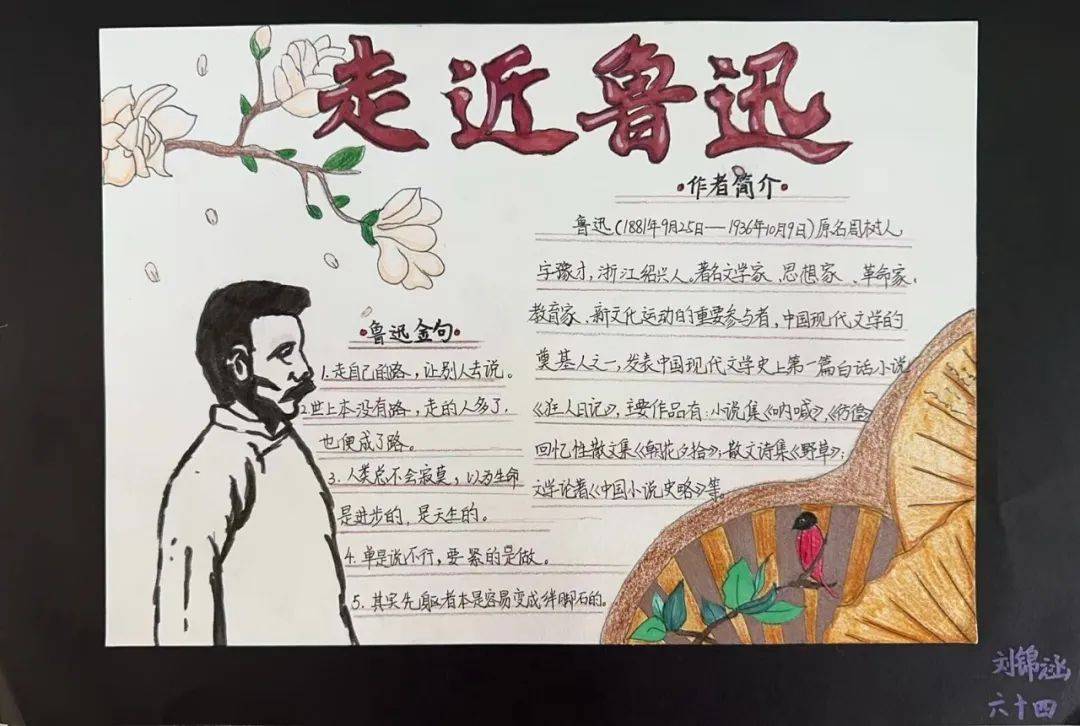 走近鲁迅
作者简介
鲁迅(1881年9月25日——1936年10月9日)原名周树人,
字豫才,浙江绍兴人。著名文学家、思想家、革命家,
教育家、新文化运动的重要参与者,中国现代文学的
奠基人之一,发表中国现代文学史上第一篇白话小说
《狂人日记》,主要作品有:小说集《呐喊》,《彷徨》
回忆性散文集《朝花夕拾》;散文诗集《野草》;
文学论著《中国小说史略》等。
鲁迅金句
1.走自己的路,让别人去说。
2.世上本没有路,走的人多了,
也便成了路。
3.人类总不会寂寞,以为生命
是进步的,是天生的。
4.单是说不行,要紧的是做。
5.其实先驱者本是容易变成绊脚石的。
刘锦涵
六十四